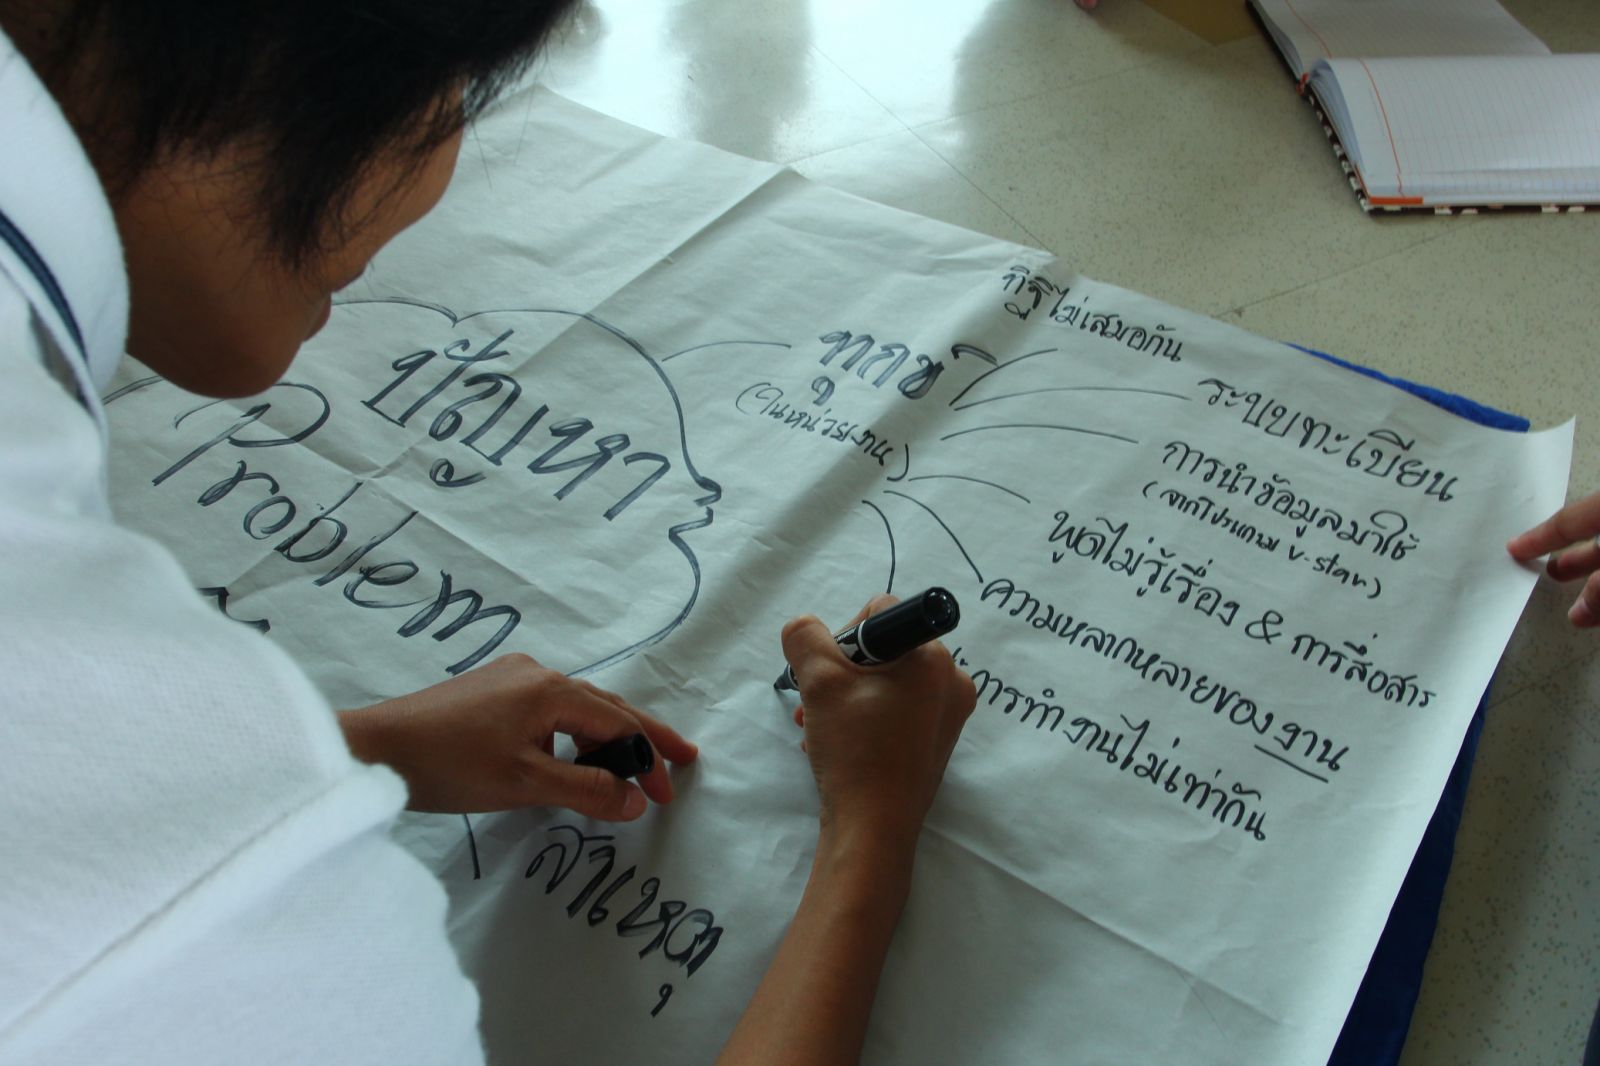 ปัญหา
Problem
ทุกข์
(ในหน่วยงาน)
ทิฐิไม่เสมอกัน
ระบบทะเบียน
การนำข้อมูลมาใช้
(จากโปรแกรม v-star)
พูดไม่รู้เรื่อง & การสื่อสาร
ความหลากหลายของงาน
การทำงานไม่เท่ากัน
สาเหตุ